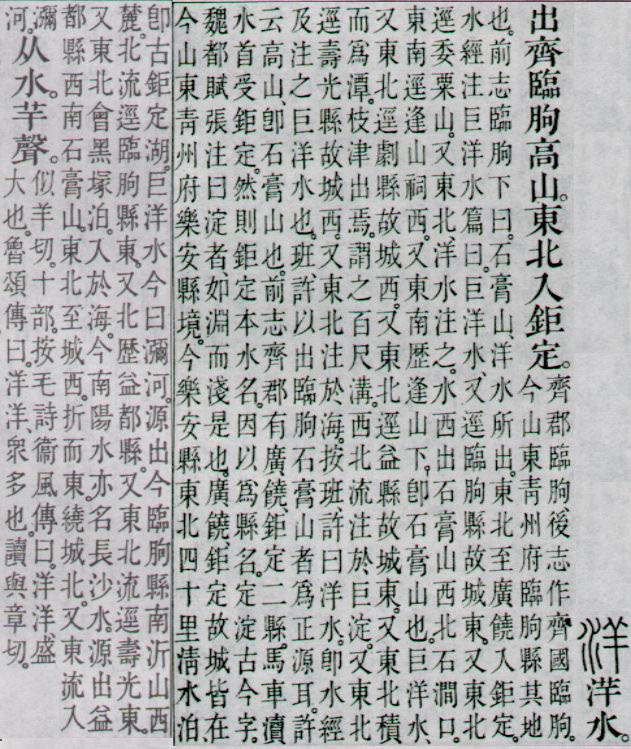 洋水。
出齊臨朐高山。東北入鉅定。
齊郡臨朐、後志作齊國臨朐。
今山東青州府臨朐縣其地
也。前志臨朐下曰。石膏山、洋水所出。東北至廣饒入鉅定。
水經注巨洋水篇曰。巨洋水、又逕臨朐縣故城東。又東北
逕委粟山。又東北、洋水注之。水西出石膏山西北石澗口。
東南逕逢山祠西。又東南歷逢山下。卽石膏山也。巨洋水、
又東北逕劇縣故城西。又東北逕益縣故城東。又東北積
而爲潭。枝津出焉。謂之百尺溝。西北流注於巨淀。又東北
逕壽光縣故城西。又東北注於海。按班、許曰洋水。卽水經
及注之巨洋水也。班、許以出臨朐石膏山者爲正源耳。許
云高山、卽石膏山也。前志齊郡有廣饒、鉅定二縣。馬車瀆
水首受鉅定。然則鉅定本水名。因以爲縣名。定淀古今字。
魏都賦張注曰淀者、如淵而淺是也。廣饒、鉅定故城皆在
今山東青州府樂安縣境。今樂安縣東北四十里淸水泊、
卽古鉅定湖。巨洋水今曰瀰河。源出今臨朐縣南沂山西
麓。北流逕臨朐縣東。又北歷益都縣。又東北流逕壽光東。
又東北會黑塚泊。入於海。今南陽水亦名長沙水。源出益
都縣西南石膏山。東北至城西。折而東。繞城北。又東流入
瀰河。
从水。羊聲。
似羊切。十部。按毛詩衞風傳曰。洋洋、盛
大也。魯頌傳曰。洋洋、衆多也。讀與章切。